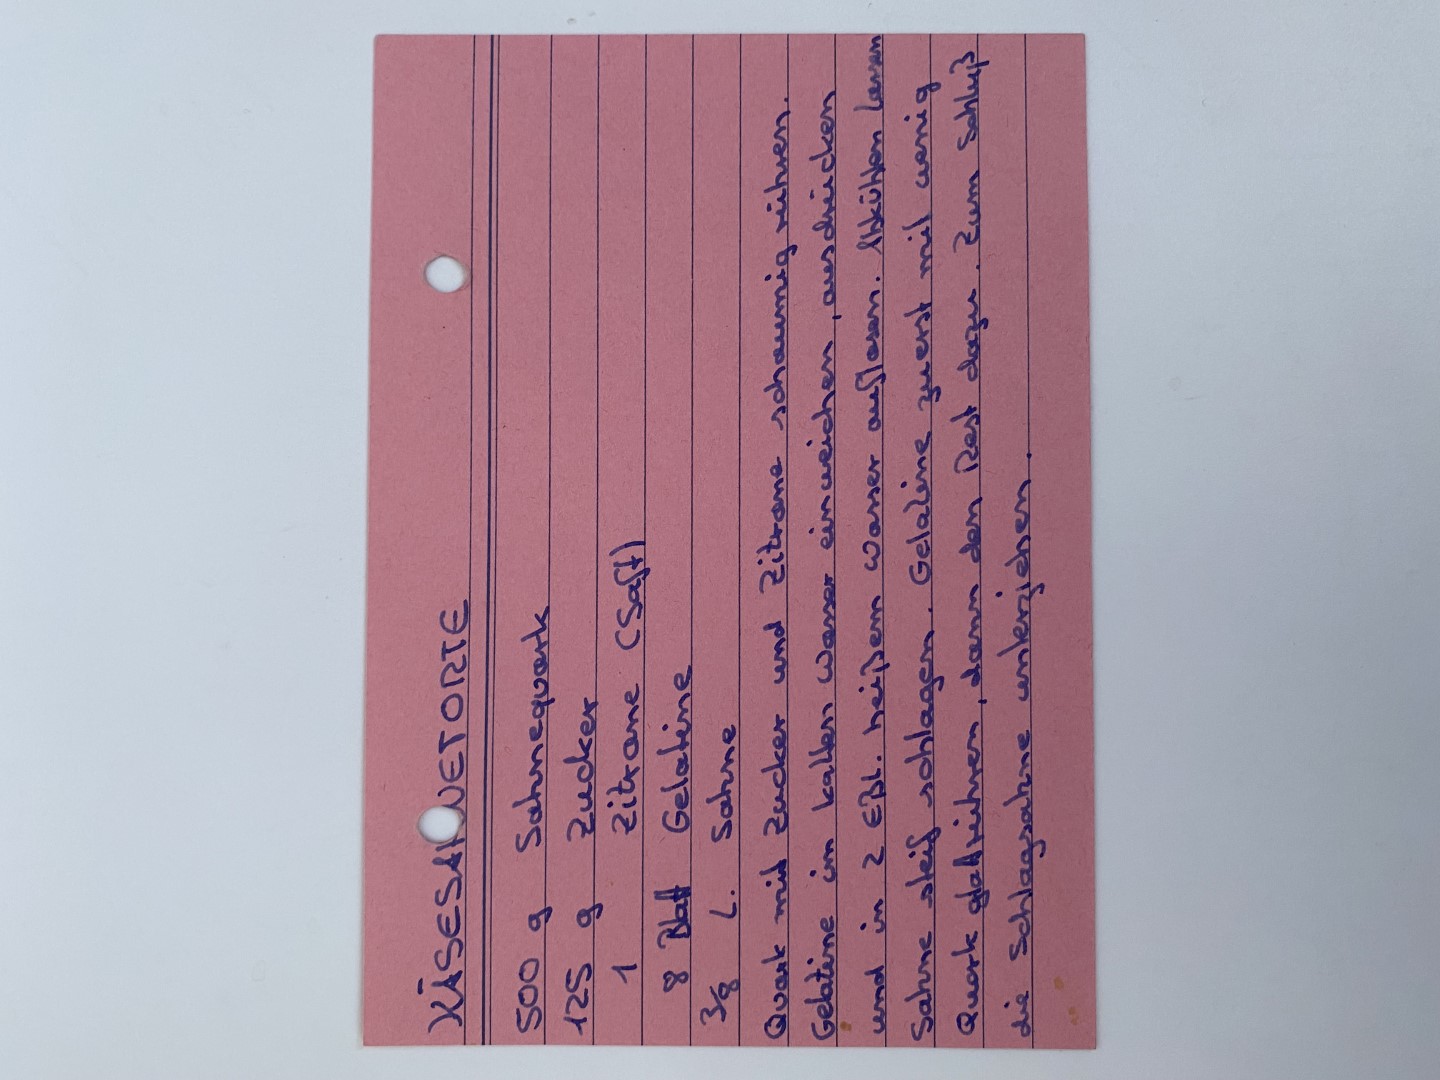 KÄSESAHNETORTE
500 g Sahnequark
125 g Zucker
1 Zitrone (Saft)
8 Blatt Gelatine
3/8 L. Sahne
Quark mit Zucker und Zitrone schaumig rühren.
Gelatine im kalten Wasser einweichen, ausdrücken
und in 2 Eßl. heißem Wasser auflösen. Abkühlen lassen
Sahne steif schlagen. Gelatine zuerst mit wenig
Quark glattrühren, dann den Rest dazu. Zum Schluß
die Schlagsahne unterziehen.